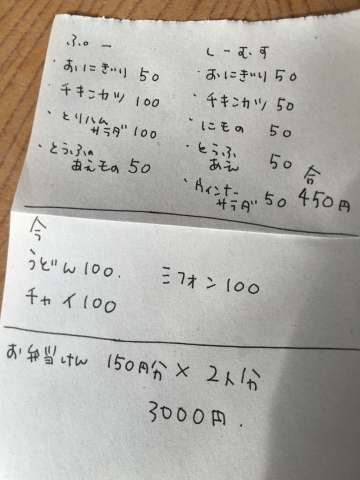 ふー
・おにぎり 50
・チキンカツ 100
・とりハム
サラダ 100
・とうふの
あえもの 50
しーむす
・おにぎり 50
・チキンカツ 50
・にもの 50
・とうふ
あえ 50
・ウインナー
サラダ 50
合
450円
今
うどん100.
ミフォン100
チャイ100
お弁当けん 150円分 × 2人分
3000円.